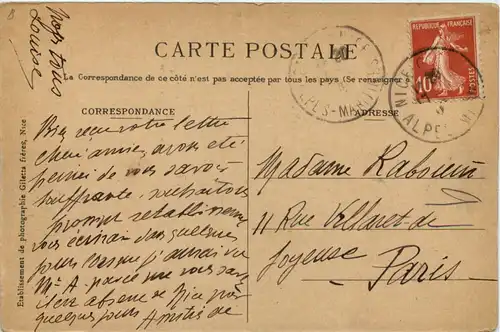 Nous tous
Louise
CARTE POSTALE
La Correspondance de ce côté n'est pas acceptée par tous les pays (Se renseigner
CORRESPONDANCE
ADRESSE
Bien reçu votre lettre
chère amie, avons été
peinés de vous savoir
souffrante, souhaitons
prompt rétablissement
vous écrirai dans quelques
jours lorsque j'aurai vu
Mr A parce que vous savez
absent de Nice pour
quelques jours Amitiés de
Madame Rabouin
11 Rue Villaret de
Joyeuse
Paris
Etablissement de photographie Giletta frères, Nice
REPUBLIQUE FRANÇAISE
10
POSTES
NICE
ALPES-M
ALPES-MARITIMES